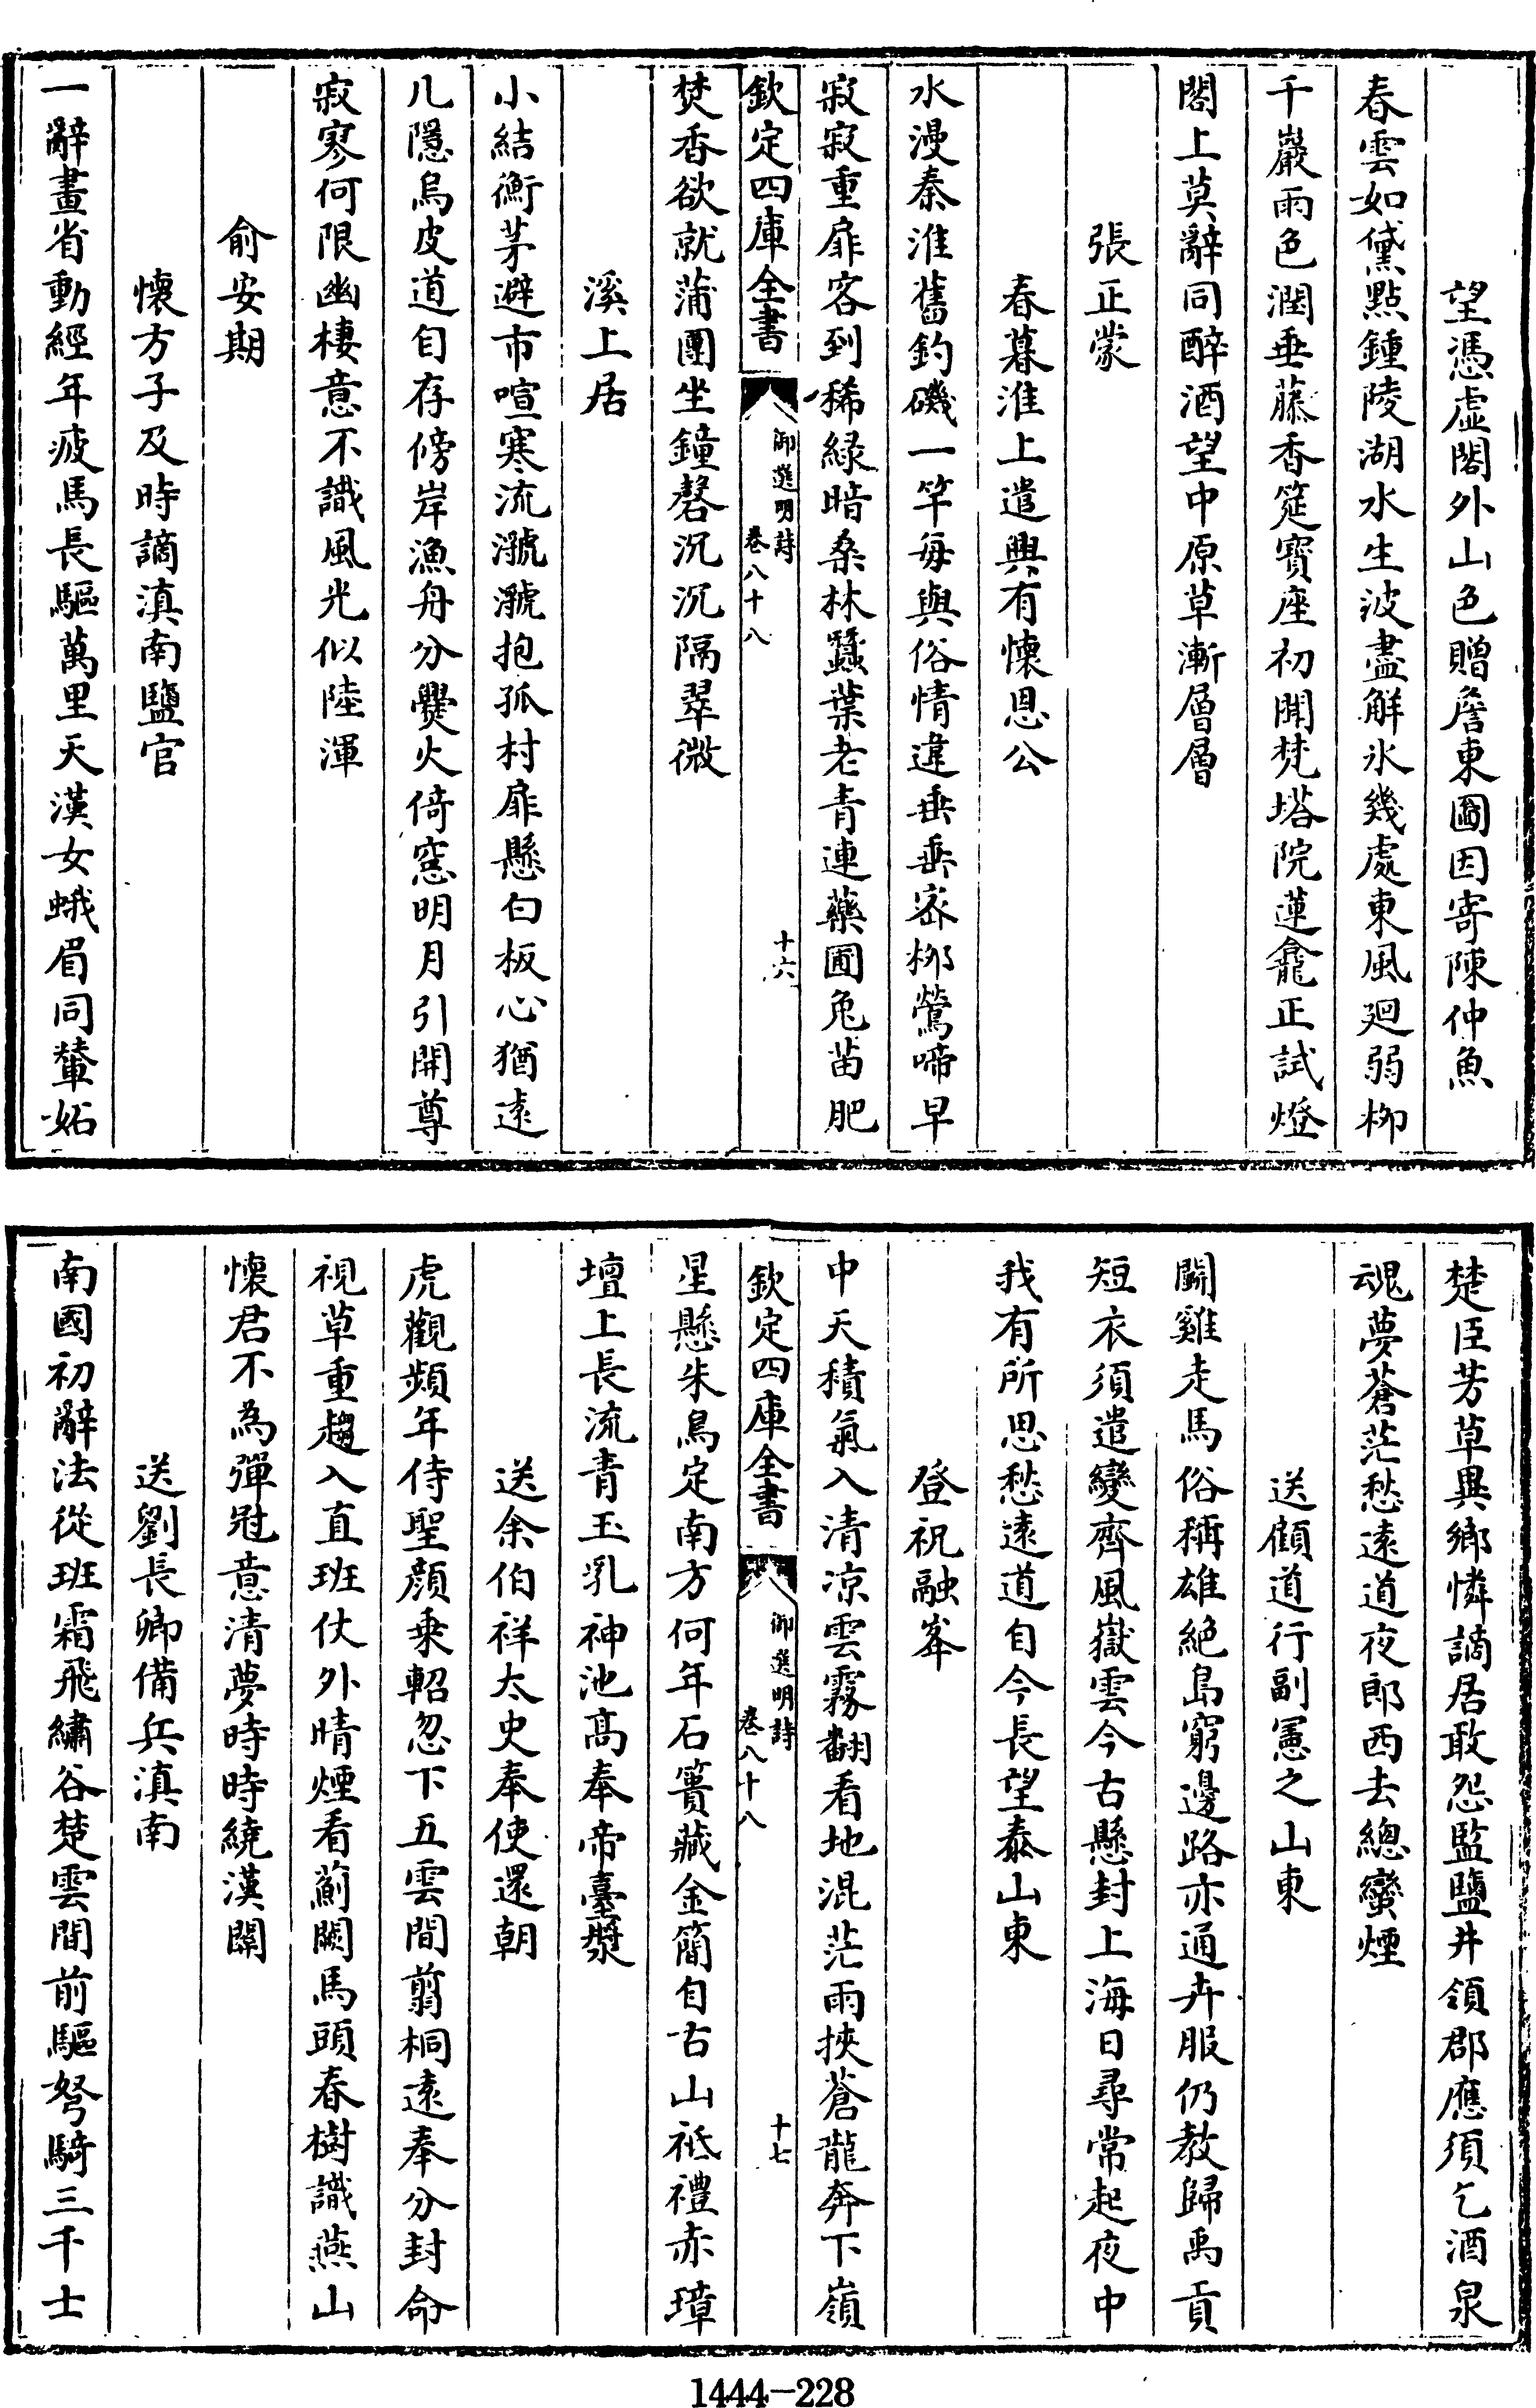 望憑虛閣外山色贈詹東圖因寄陳仲魚
春雲如黛點鍾陵湖水生波盡解氷幾處東風廻弱栁
千巖雨色潤垂藤香筵寳座初開梵塔院蓮龕正試燈
閣上莫辭同醉酒望中原草漸層層
張正蒙
春暮淮上遣興有懷恩公
水漫秦淮舊釣磯一竿每與俗情違垂垂宻栁鶯啼早
寂寂重扉客到稀緑暗桑林蠶葉老青連藥圃兔苗肥
欽定四庫全書
御選明詩
卷八十八
十六
焚香欲就蒲團坐鐘磬沉沉隔翠微
溪上居
小結衡茅避市喧寒流㶁㶁抱孤村扉懸白板心猶遠
几隱烏皮道自存傍岸漁舟分爨火倚窓明月引開尊
寂寥何限幽棲意不識風光似陸渾
俞安期
懷方子及時謫滇南鹽官
一辭畫省動經年疲馬長驅萬里天漢女蛾眉同輦妬
楚臣芳草異鄉憐謫居敢怨監鹽井領郡應須乞酒泉
魂夢蒼茫愁遠道夜郎西去總蠻煙
送顧道行副憲之山東
鬬雞走馬俗稱雄絶島窮邊路亦通卉服仍教歸禹貢
短衣須遣變齊風嶽雲今古懸封上海日尋常起夜中
我有所思愁遠道自今長望泰山東
登祝融峯
中天積氣入清凉雲霧翻看地混茫雨挾蒼龍奔下嶺
欽定四庫全書
御選明詩
卷八十八
十七
星懸朱鳥定南方何年石簣藏金簡自古山祗禮赤璋
壇上長流青玉乳神池髙奉帝臺漿
送余伯祥太史奉使還朝
虎觀頻年侍聖顔乗軺忽下五雲間翦桐遠奉分封命
視草重趨入直班仗外晴煙看薊闕馬頭春樹識燕山
懷君不為彈冠意清夢時時繞漢關
送劉長卿備兵滇南
南國初辭法從班霜飛繡谷楚雲間前驅弩騎三千士
1444-228